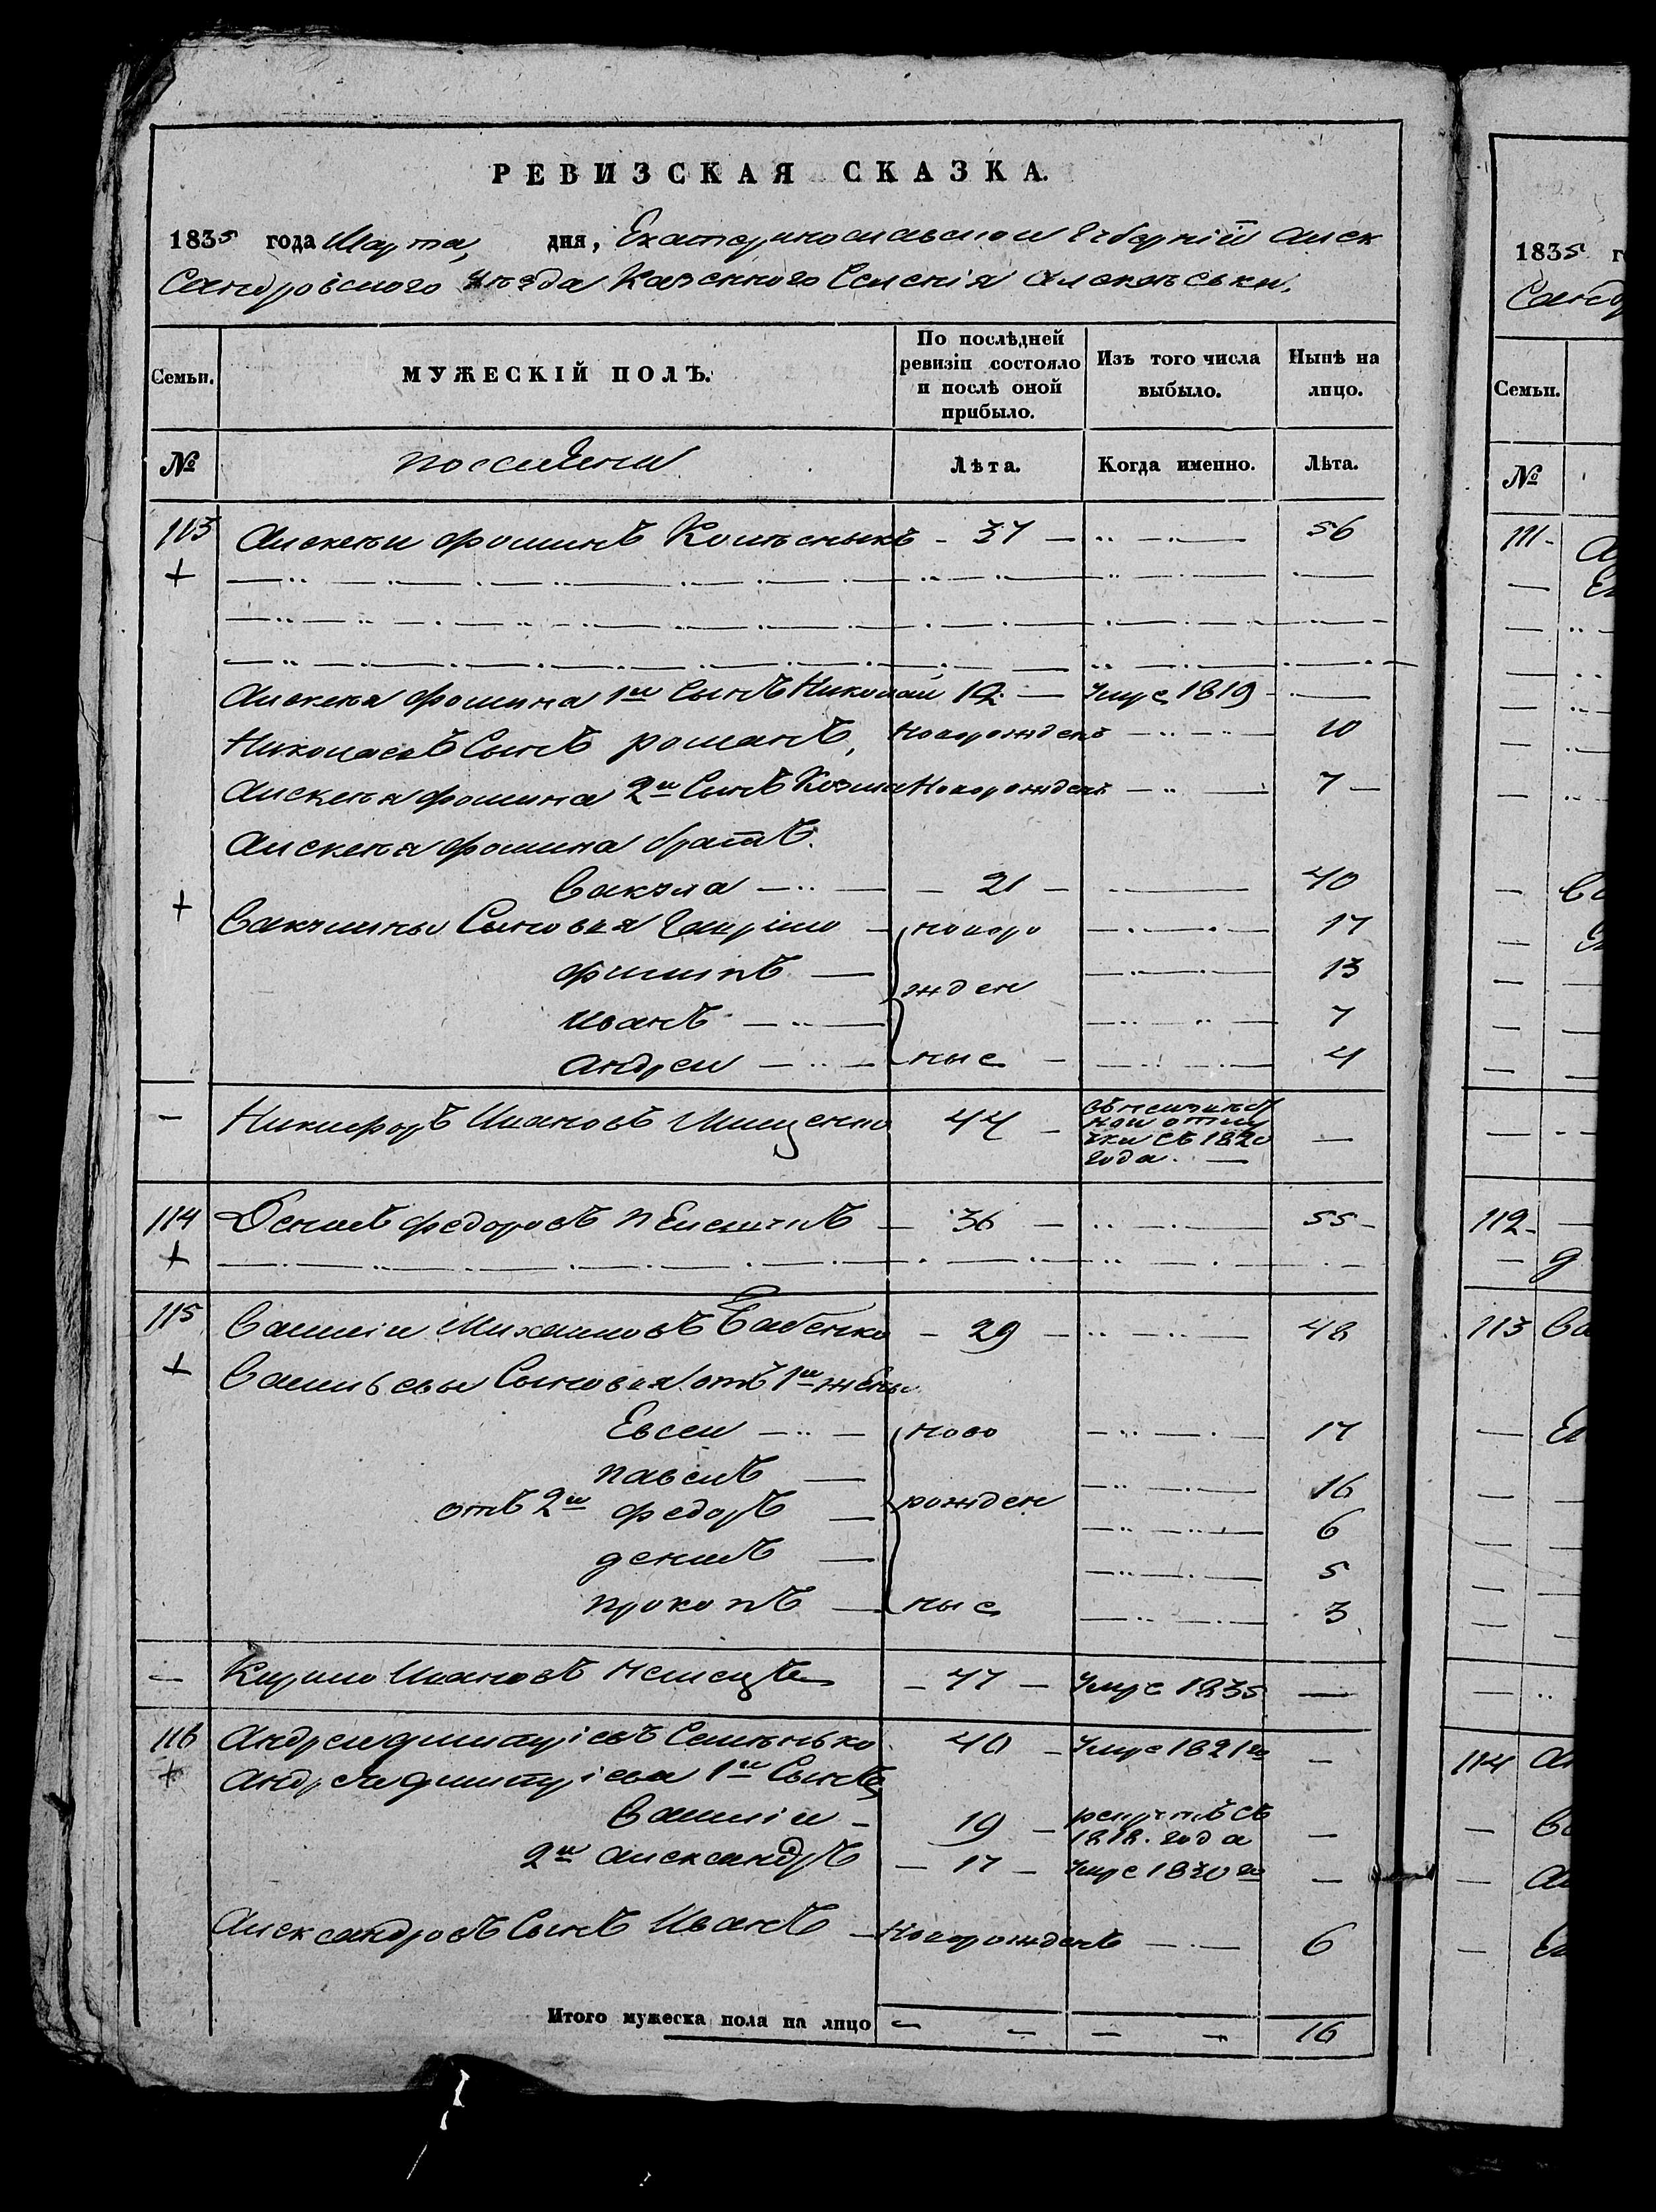 РЕВИЗСКАЯ СКАЗКА.
1835 года Марта, дня, Екатеринославской Губерніи Алек
сандровского Уѣзда Казенного Селенія
Семьи. МУЖЕСКІЙ ПОЛЪ. По послѣдней ревизіи состояло и послѣ оной прибыло. Изъ того числа выбыло. Нынѣ на лицо.
№ Лѣта. Когда именно. Лѣта.
113 Алексѣй Фоминъ Колѣсныкъ - 37 — 56
+
Алексѣя Фомина 1й Сынъ Николай 12 — Умре 1819
Николаевъ Сынъ романъ, Новорожденъ 10
Алексѣя Фомина 2й Сынъ Козма Новорожденъ 7
Алексѣя Фомина братъ
Вакула — 21 — 40
+
Вакулины Сыновья Гаврило новоро 17
Филипъ 13
жден
Иванъ 7
Андрей ные 4
— Никифоръ Ивановъ Мищенко 44 — въ неизвѣст
ной отлу
чки съ 1820
года. —
114 Денисъ Федоровъ — 36 — 55
+
115 Василій Михайловъ Бабенко - 29 — 48
+ Васильевы Сыновья отъ 1й жены
Евсей ново 17
павелъ 16
отъ 2й федоръ рожден 6
денисъ 5
прокопъ ные 3
— Кирило Ивановъ Немецъ — 47 — Умре 1835 —
116 Андрей дмитріевъ 40 — Умре 1821го —
+ Андрея дмитріева 1й Сынъ
Василій — 19 — рекрутъ съ
1818. года —
2й Александръ — 17 — Умре 1830го —
Александровъ Сынъ Иванъ — Новорожденъ 6
Итого мужеска пола на лицо — — — — 16
1835 г
Санд
Семьи.
№
111
112
113 Ва
114 Ан